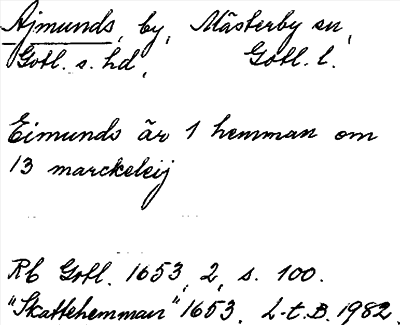 Ajmunds, by, Mästerby sn,
Gotl. s. hd, Gotl. l.
Eimunds är 1 hemman om
13 marckeleij
Rb Gotl. 1653, 2, s. 100.
"Skattehemman" 1653. L-t.B. 1982.